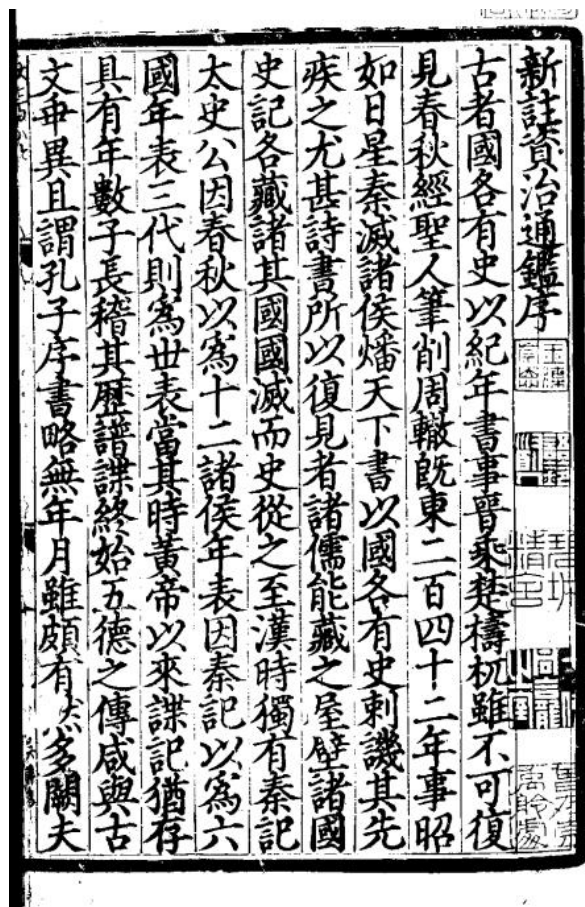 新註資治通鑑序
古者國各有史以紀年書事晉乘楚檮杌雖不可復
見春秋經聖人筆削周轍既東二百四十二年事昭
如日星秦滅諸侯燔天下書以國各有史刺譏其先
疾之尤甚詩書所以復見者諸儒能藏之屋壁諸國
史記各藏諸其國國滅而史從之至漢時獨有秦記
大史公因春秋以為十二諸侯年表因秦記以為六
國年表三代則為世表當其時黃帝以來諜記猶存
具有年數子長稽其歷譜諜終始五德之傳咸與古
文乖異且謂孔子序書略無年月雖頗有然多闕夫